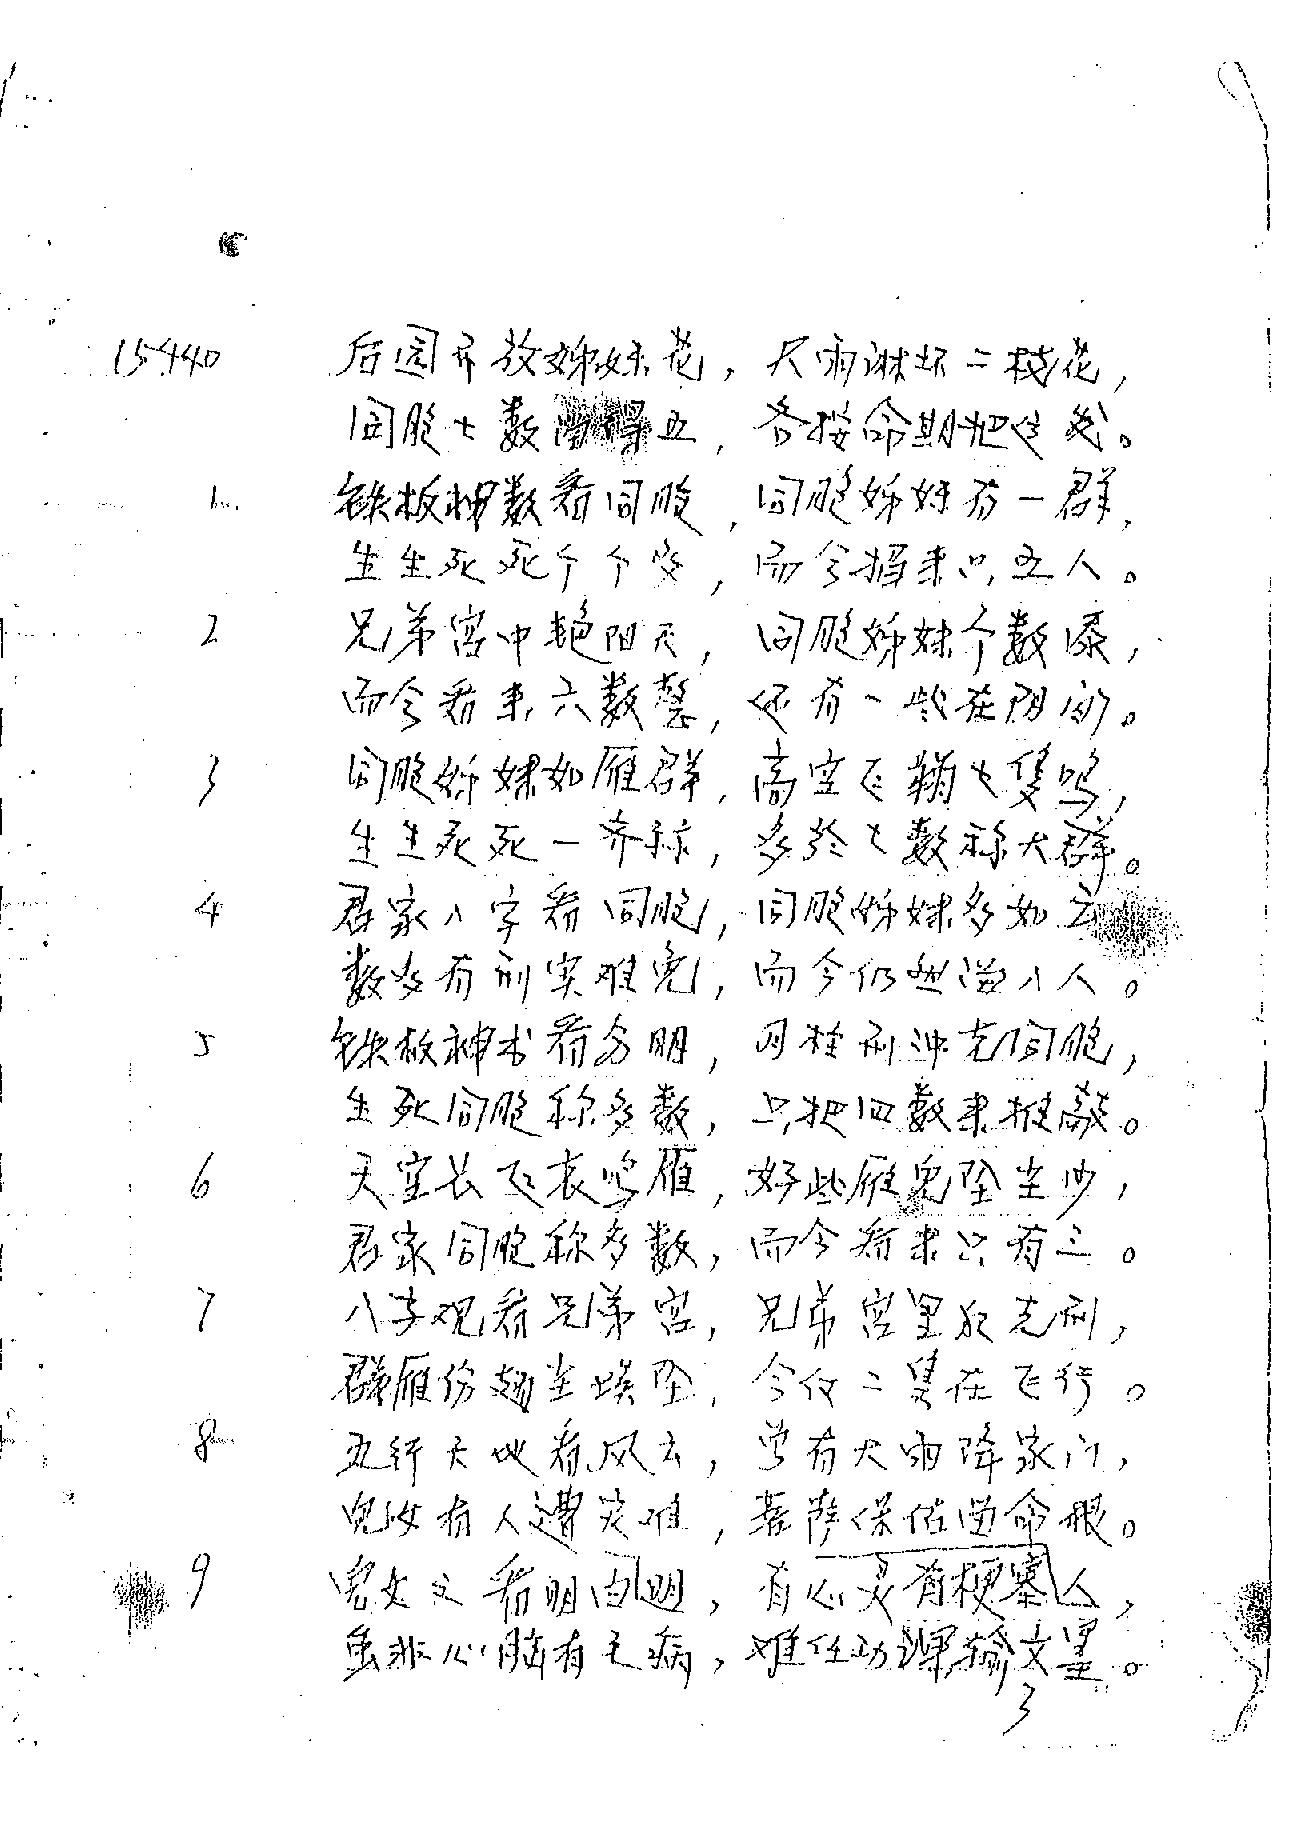 15440 后园开放姊妹花，大雨淋坏二枝花，
同胞七数 得五，各按命期把 。
1 铁板神数看同胞，同胞姊妹有一群，
生生死死个个 ，而今 来只五人。
2 兄弟宫中艳阳天，同胞姊妹个数添，
而今看来六数 ，还有一些在阴间。
3 同胞姊妹如雁群，高空飞 七隻鸣，
生生死死一齐称，多於七数称大群。
4 君家八字看同胞，同胞姊妹多如云
数多有刑实难免，而今仍 八人。
5 铁板神术看分明，月柱刑冲克同胞，
生死同胞称多数，只把四数来推敲。
6 天空长飞哀鸣雁，好些雁兒坠尘沙，
君家同胞称多数，而今看来只有三。
7 八字观看兄弟宫，兄弟宫里 克刑，
群雁伤翅尘埃坠，今仅二隻在飞行。
8 五行天地看风云，曾有大雨降家门，
兒女有人遭灾难，菩萨保佑 命根。
9 兒女 看明白 ，有心 有梗塞人，
虽非心脑有毛病，难任功课输文墨。
3